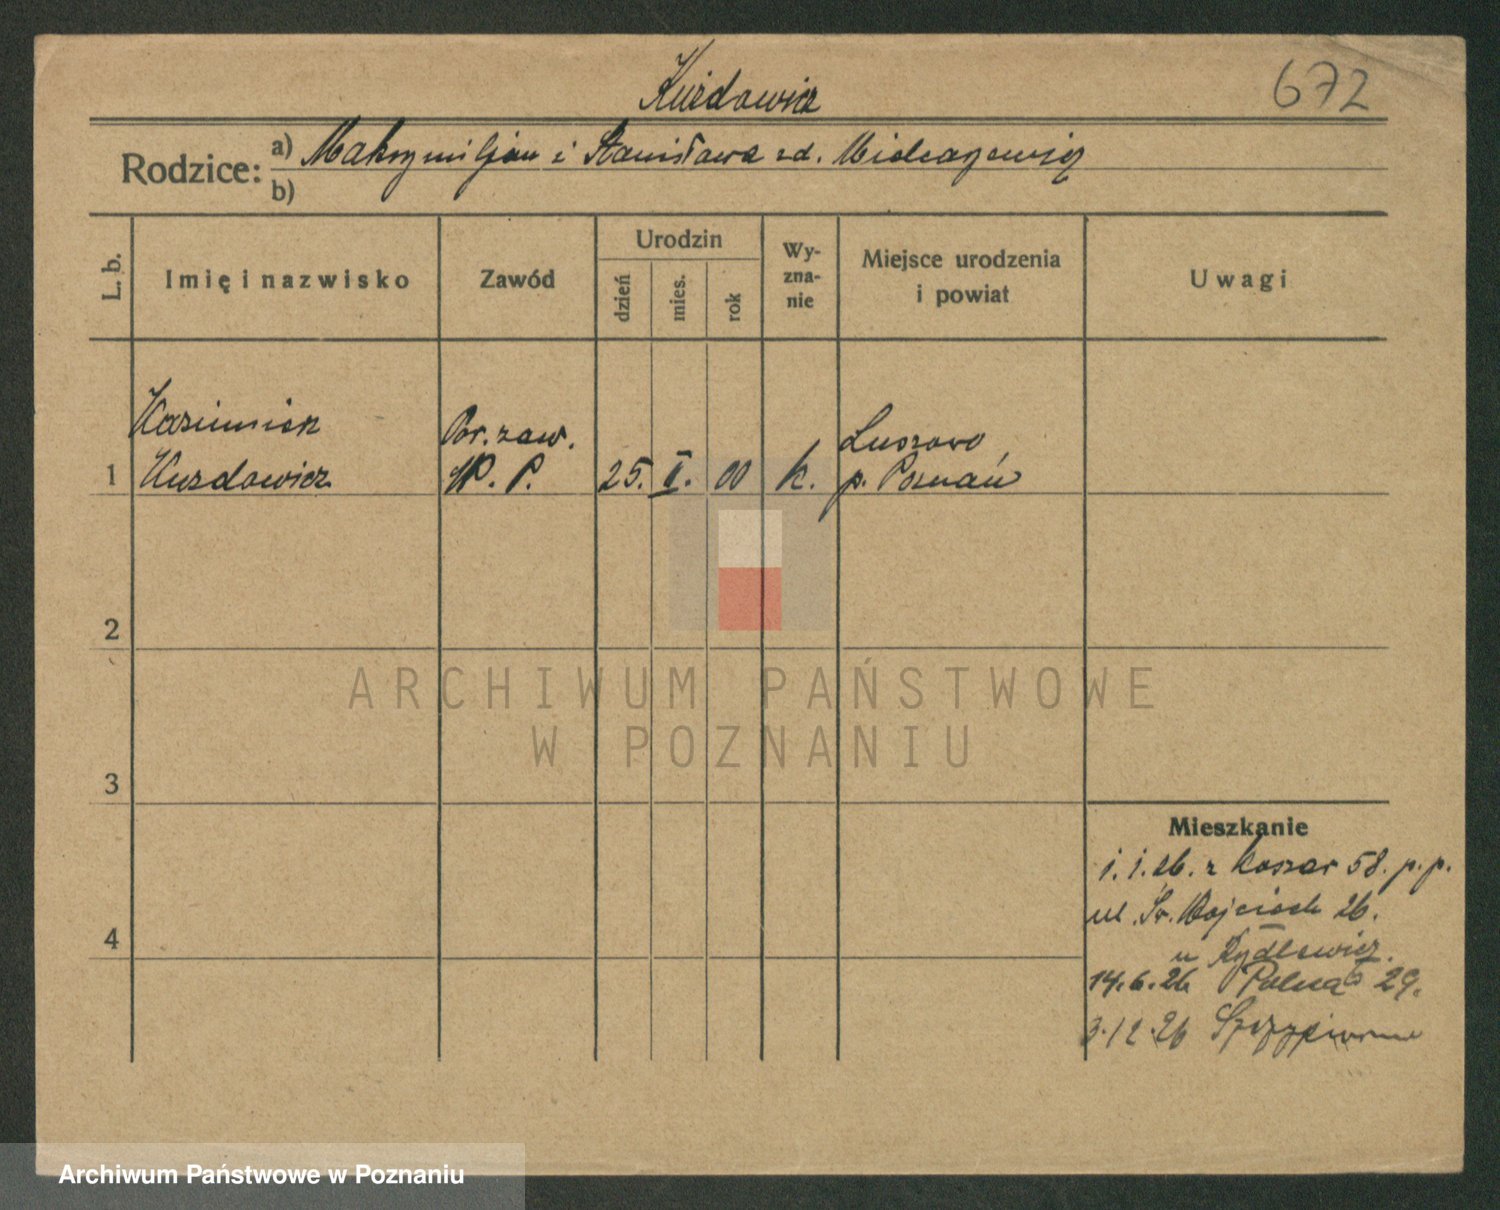 Kurdowicz
672
Rodzice: a) Maksymiljan i Stanisława zd.
b)
L. b.
Imię i nazwisko
Zawód
Urodzin
dzień
mies.
rok
Wy-
zna-
nie
Miejsce urodzenia
i powiat
Uwagi
Kazimierz
Kurdowicz
Por. zaw.
W. P.
25. II. 00
k.
Lusowo
p. Poznań
1
2
3
4
ARCHIWUM PAŃSTWOWE
W POZNANIU
Mieszkanie
1. 1. 26. z koszar 58. p. p.
ul. Św. Wojciech 26.
u Rydlewicz.
14.6.26 Polna 29.
3.12.26
Archiwum Państwowe w Poznaniu